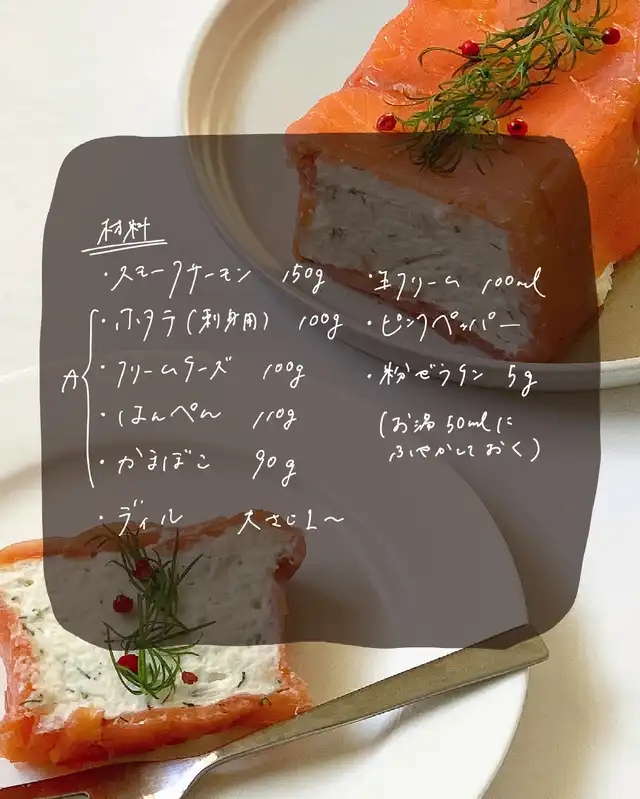 材料
・スモークサーモン 150g
A
・ホタテ(刺身用) 100g
・クリームチーズ 100g
・はんぺん 110g
・かまぼこ 90g
・ディル 大さじ1〜
・生クリーム 100ml
・ピンクペッパー
・粉ゼラチン 5g
(お湯50mlに
ふやかしておく)